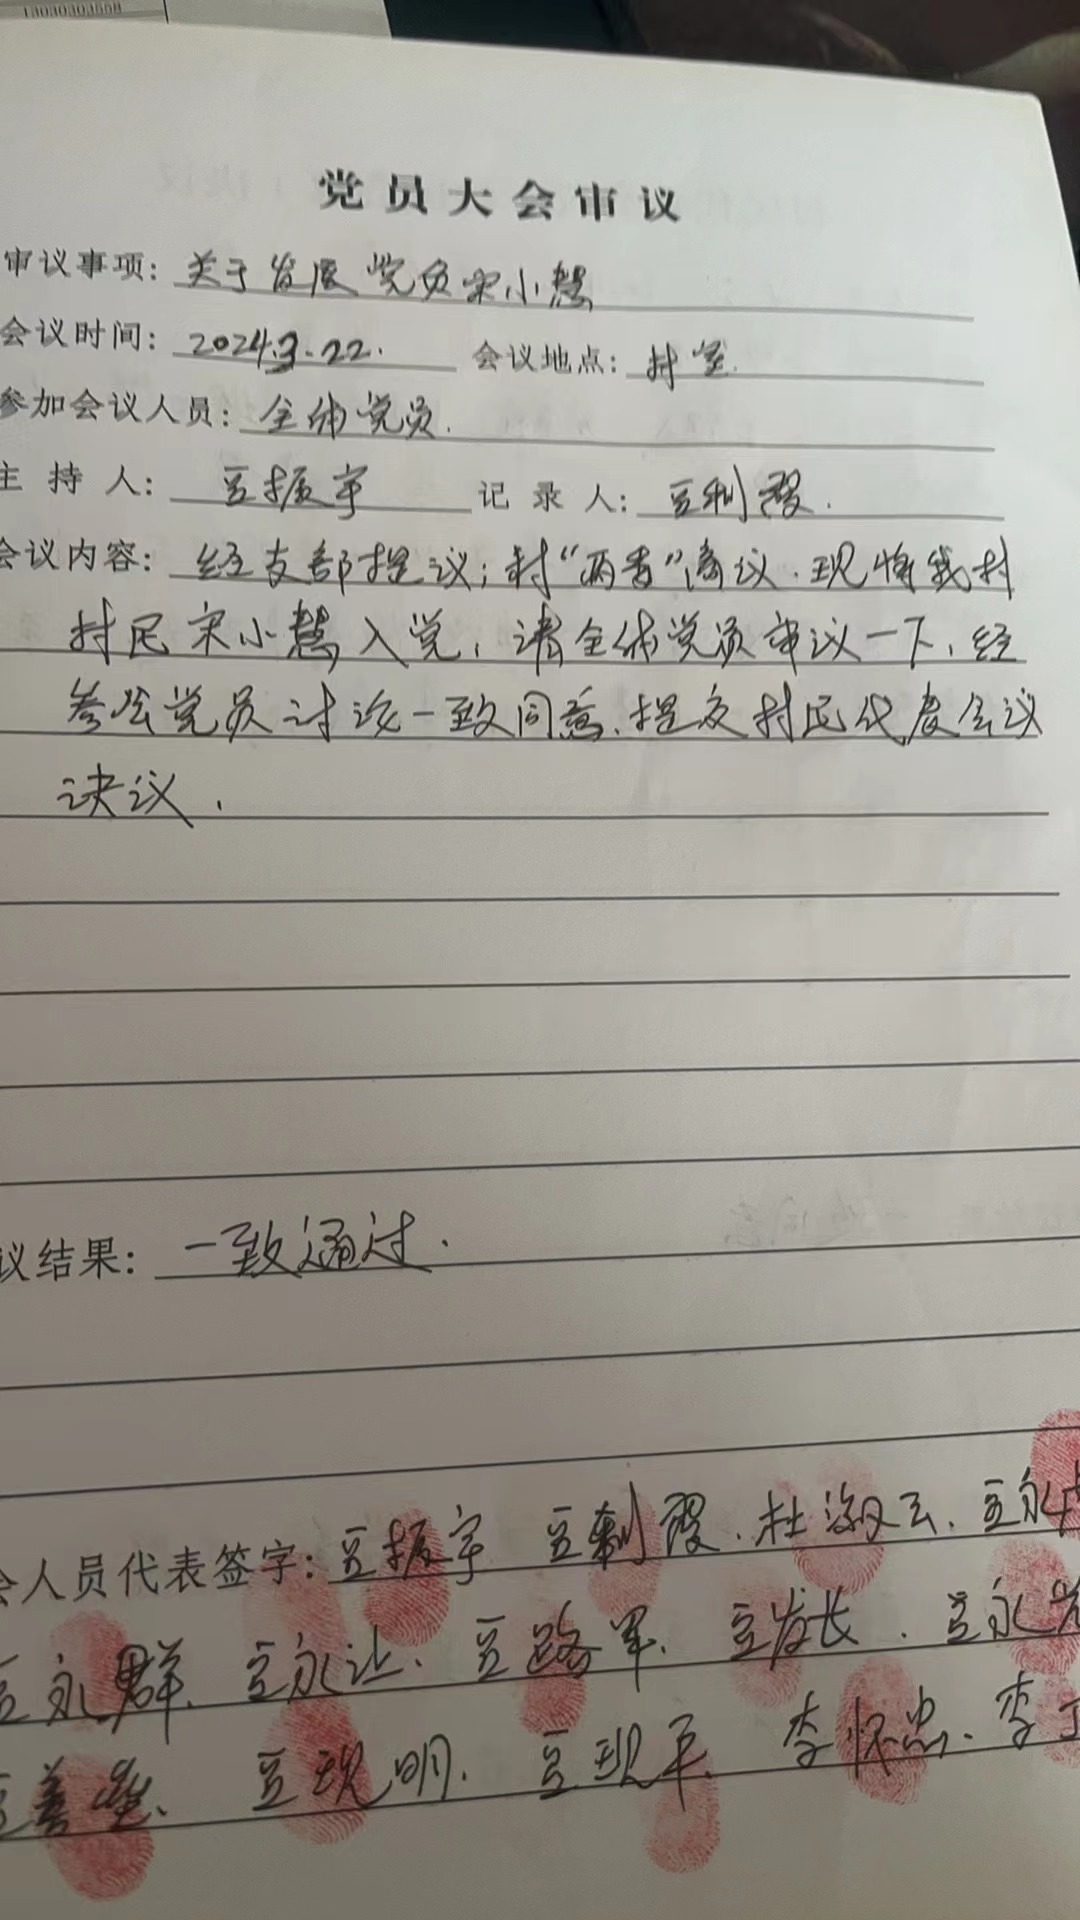 13030303558
党员大会审议
审议事项：关于发展党员宋小慧
会议时间：2024.3.22. 会议地点：村室
参加会议人员：全体党员.
主持人：豆振宇 记录人：豆利霞.
会议内容：经支部提议；村“两委”商议.现将我村
村民宋小慧入党，请全体党员审议一下，经
参会党员讨论一致同意.提交村民代表会议
决议.
议结果：一致通过.
会人员代表签字：豆振宇 豆利霞.杜淑云.豆永
豆永群.豆永让.豆路军.豆发长.豆永
豆善.豆现明.豆现平.李怀忠.李